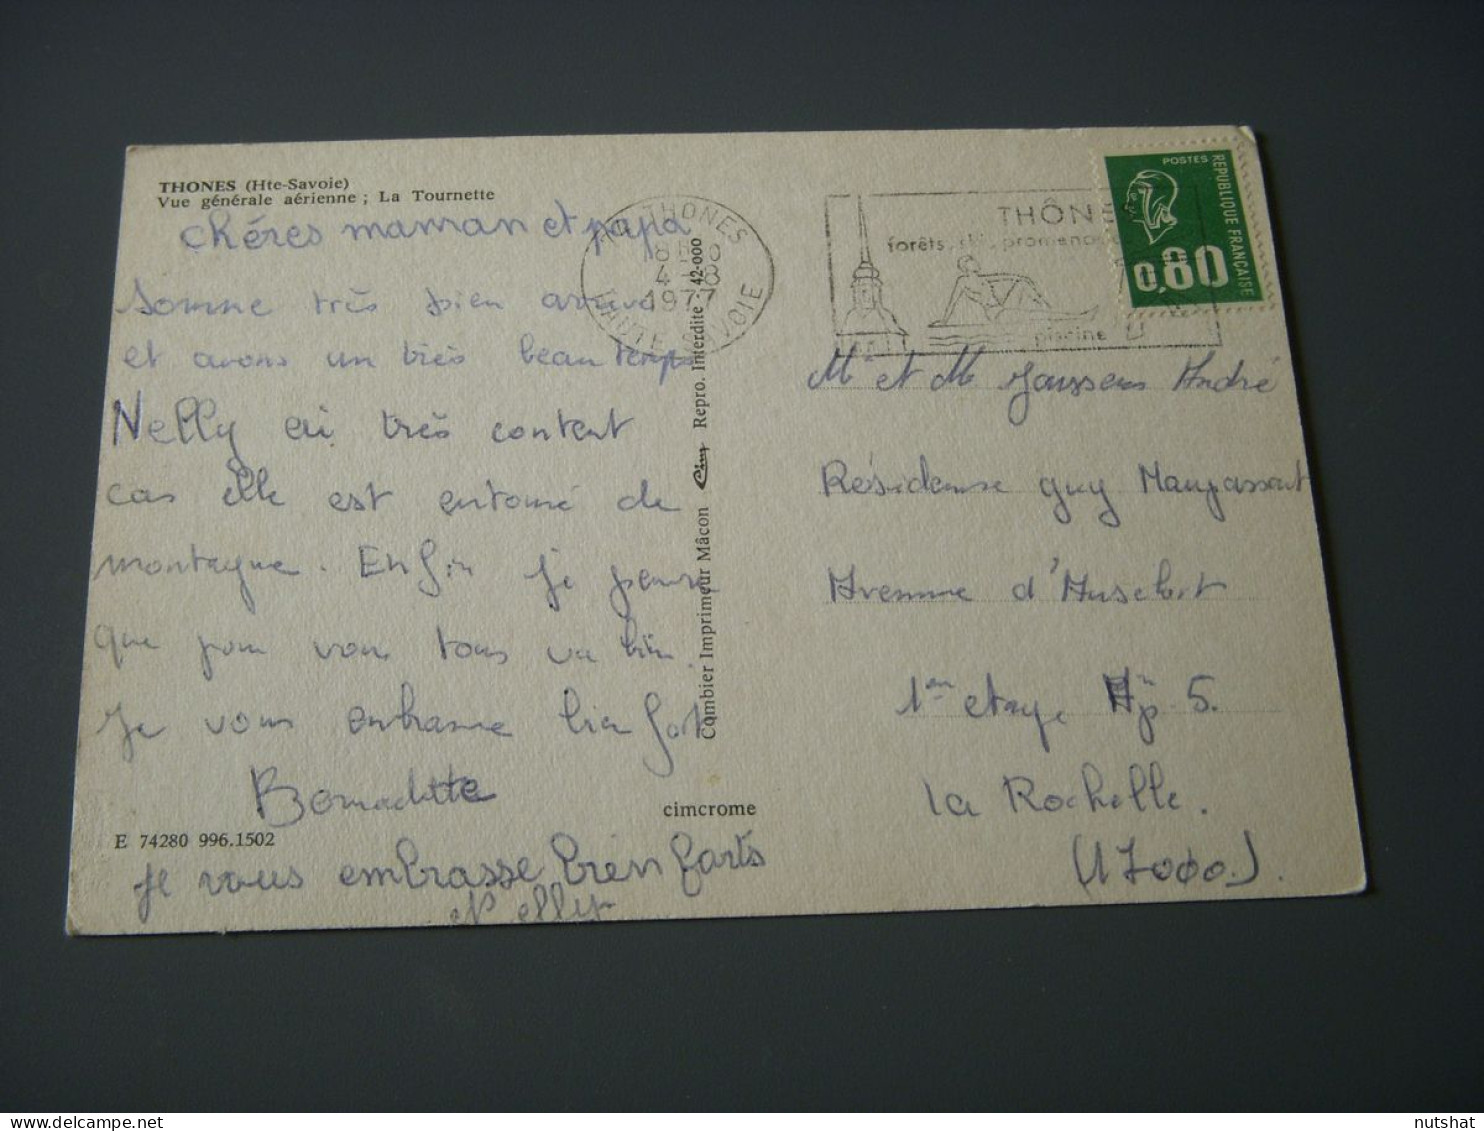 THONES (Hte-Savoie)
Vue générale aérienne ; La Tournette
chéres maman et papa
Somme très bien arrivé
et avons un très beau temps
Nelly ai très content
car elle est entouré de
montagne. Enfin je pense
que pour vous tous va bien.
Je vous embrasse bien fort
Bernadette
Je vous embrasse bien farts
Nelly
E 74280 996.1502
cimcrome
Combier Imprimeur Mâcon Cim Repro. Interdite : 42-000
74 THONES
4 - 8
1977
HAUTE SAVOIE
THÔNE
forêts, ski, promenad
piscine
POSTES
REPUBLIQUE FRANÇAISE
0,80
Mr et M Janssens André
Résidense guy Maupassant
Avenue
1er etage Ap 5.
La Rochelle.
(17000).
nutshat